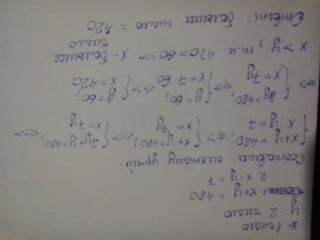 x-1 число
y-2 число
x+y = 480
x:y = 7
Составим систему ур-ий:
{ x+y = 480, x:y = 7 <=> { x+y = 480; x = 7y <=> { 7y+y = 480; x = 7y <=>
<=> { 8y = 480; x = 7y <=> { y = 60; x = 7·60 <=> { y = 60; x = 420
x > y, т.к. 420 > 60 => x - большее
число
Ответ: большее число = 420